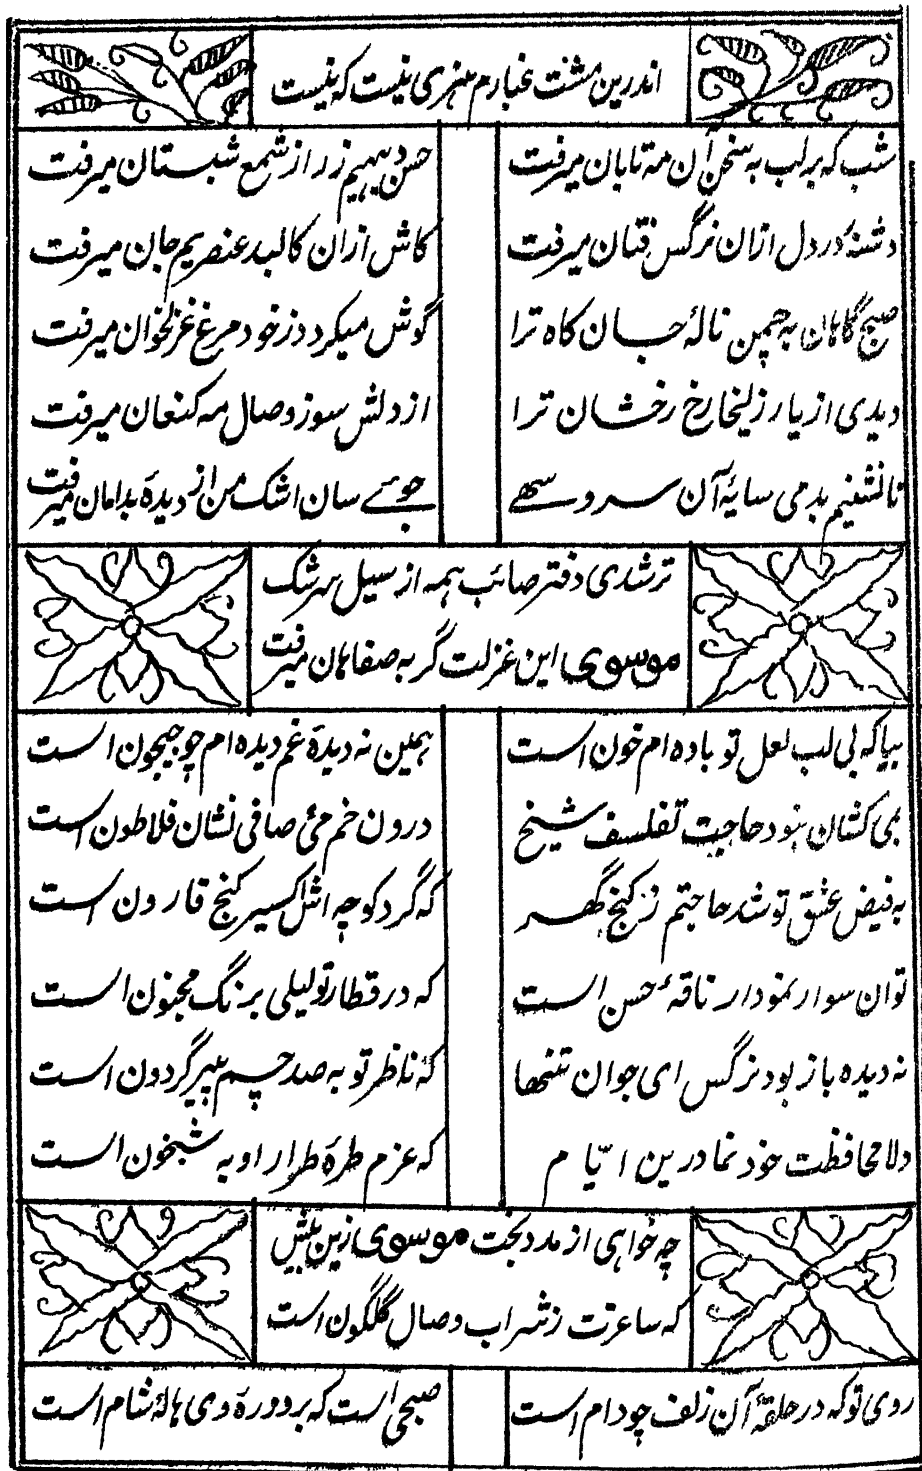 اندرین مشت غبارم هنری نیست که نیست
شب که بر لب به سخن آن مه تابان میرفت
حسن دیهیم زر از شمع شبستان میرفت
دشنهٔ در دل ازان نرگس فتان میرفت
کاش ازان کالبد عنصریم جان میرفت
صبح گاهان به چمن نالهٔ جان کاه ترا
گوش میکرد و ز خود مرغ غزلخوان میرفت
دیدی از یار زلیخا رخ رخشان ترا
از دلش سوز وصال مه کنعان میرفت
تا نشینم بدمی سایهٔ آن سرو سهے
جوئے سان اشک من از دیدهٔ بدامان میرفت
تر شدی دفتر صائب همه از سیل سرشک
موسوی این غزلت گر به صفاهان میرفت
بیا که بی لب لعل تو باده ام خون است
همین نه دیدهٔ غم دیده ام چو جیحون است
بمی کشان نبود حاجت تفلسف شیخ
درون خم مئ صافی نشان فلاطون است
به فیض عشق تو شد حاجتم ز کنج گهر
که گرد کوچه اش اکسیر کنج قارون است
توان سوار نمودار ناقهٔ حسن است
که در قطار تو لیلی برنگ مجنون است
نه دیده باز بود نرگس ای جوان تنها
که ناظر تو به صد چسم پیر گردون است
دلا محافظت خود نما درین ایّام
که عزم طرهٔ طرار او به شبخون است
چه خواهی از مدد بخت موسوی زین بیش
که ساغرت ز شراب وصال گلگون است
روی تو که در حلقهٔ آن زلف چو دام است
صبحی است که بر دورهٔ وی هالهٔ شام است